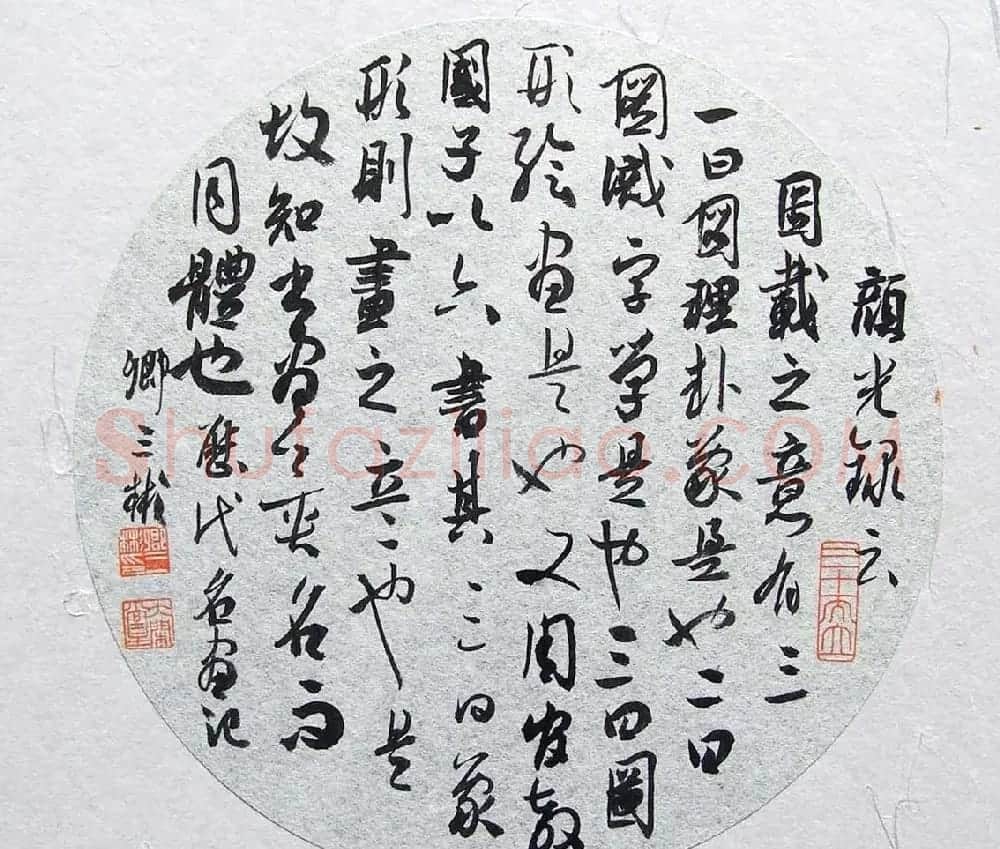 顔光録云
圖載之意有三
一曰圖理卦象是也二曰
圖識字學是也三曰圖
形繪畫是也又周官教
國子以六書其三曰象
形則畫之意也是
故知書畫異名而
同體也歷代名畫記
卿三彬
Shufaziliao.com